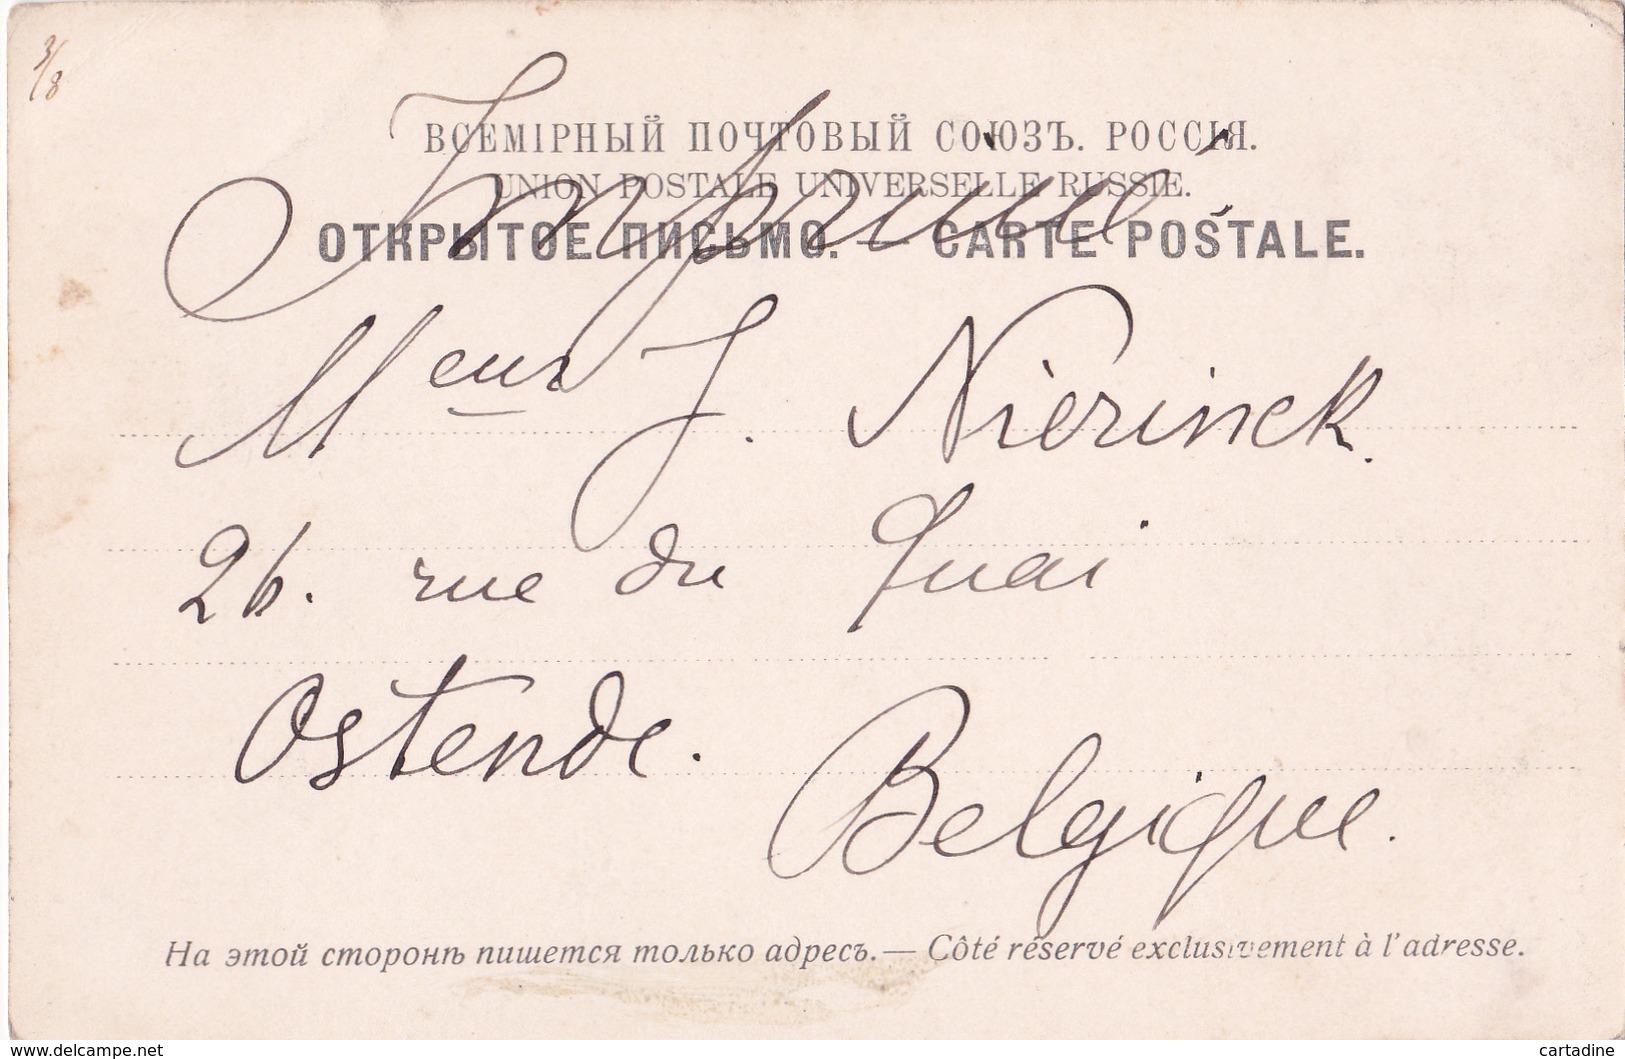 3/8
ВСЕМІРНЫЙ ПОЧТОВЫЙ СОЮЗЪ. РОССІЯ.
UNION POSTALE UNIVERSELLE RUSSIE.
Imprimé
ОТКРЫТОЕ ПИСЬМО. — CARTE POSTALE.
Meur J. Nierinck.
26. rue du Quai
Ostende.
Belgique.
На этой сторонѣ пишется только адресъ. — Côté réservé exclusivement à l'adresse.
www.delcampe.net
cartadine